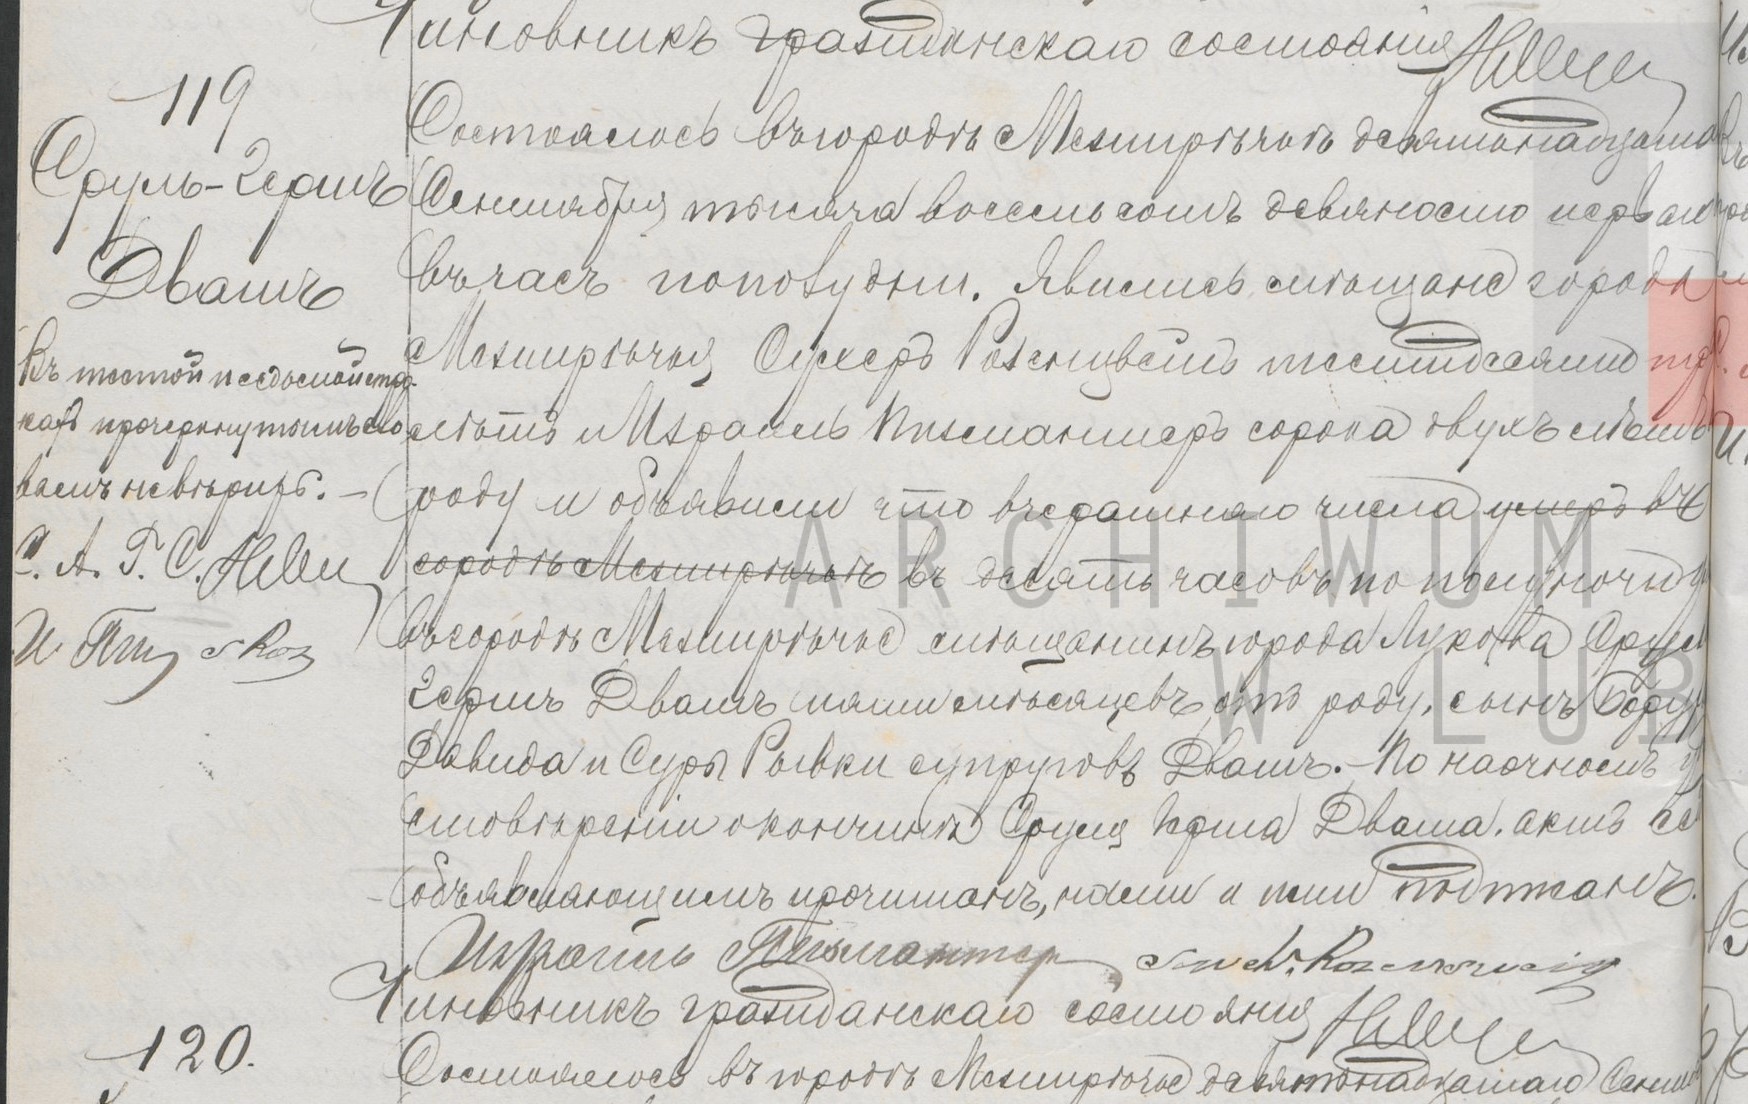 Чиновникъ гражданскаго состоянія
119
Сруль-Гершъ
Двашъ
Въ шестой и седьмой стро-
кахъ прочеркнутымъ сло
вамъ не вѣрить. —
С. А. Г. С.
Состоялось въ городѣ Мезиирѣчьѣ девятнадцатаго
Сентября тысяча восемьсотъ девяносто перваго
въ часъ пополудни. Явились мѣщане города
Мезиирѣчья Сухеръ Розенцвейгъ шестидесяти трёхъ
лѣтъ и Израиль Пизмантеръ сорока двухъ лѣтъ
роду и объявили что вчерашняго числа умеръ въ
городѣ Мезиирѣчьѣ въ десять часовъ по полуночи
въ городѣ Мезиирѣчье мѣщанинъ города Лукова Сруль
Гершъ Двашъ пяти мѣсяцевъ отъ роду, сынъ
Давида и Суры Рывки супруговъ Двашъ. — По наочномъ у
стовѣреніи о кончинѣ Сруля Герша Дваша. актъ сей
объявляющимъ прочитанъ, нами и ими подписанъ.
Израиль Пизмантер
Чиновникъ гражданскаго состоянія
120.
Состоялось въ городѣ Мезиирѣчье девятнадцатаго Сентя
ARCHIWUM
W LUB